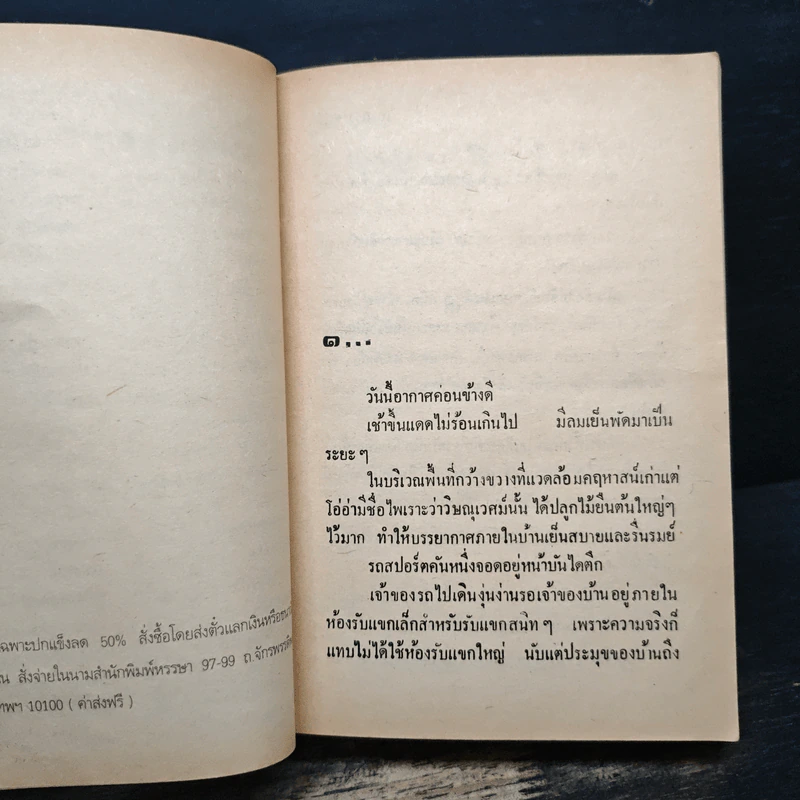 ฉพาะปกแข็งลด 50% สั่งซื้อโดยส่งตั๋วแลกเงินหรือธนา
น สั่งจ่ายในนามสำนักพิมพ์หรรษา 97-99 ถ.จักรพรรดิ
ทพฯ 10100 ( ค่าส่งฟรี )
๑...
วันนี้อากาศค่อนข้างดี
เช้าขึ้นแดดไม่ร้อนเกินไป มีลมเย็นพัดมาเป็น
ระยะๆ
ในบริเวณพื้นที่กว้างขวางที่แวดล้อมคฤหาสน์เก่าแต่
โอ่อ่ามีชื่อไพเราะว่าวิษณุเวศม์นั้น ได้ปลูกไม้ยืนต้นใหญ่ๆ
ไว้มาก ทำให้บรรยากาศภายในบ้านเย็นสบายและรื่นรมย์
รถสปอร์ตคันหนึ่งจอดอยู่หน้าบันไดตึก
เจ้าของรถไปเดินงุ่นง่านรอเจ้าของบ้านอยู่ภายใน
ห้องรับแขกเล็กสำหรับรับแขกสนิทๆ เพราะความจริงก็
แทบไม่ได้ใช้ห้องรับแขกใหญ่ นับแต่ประมุขของบ้านถึง